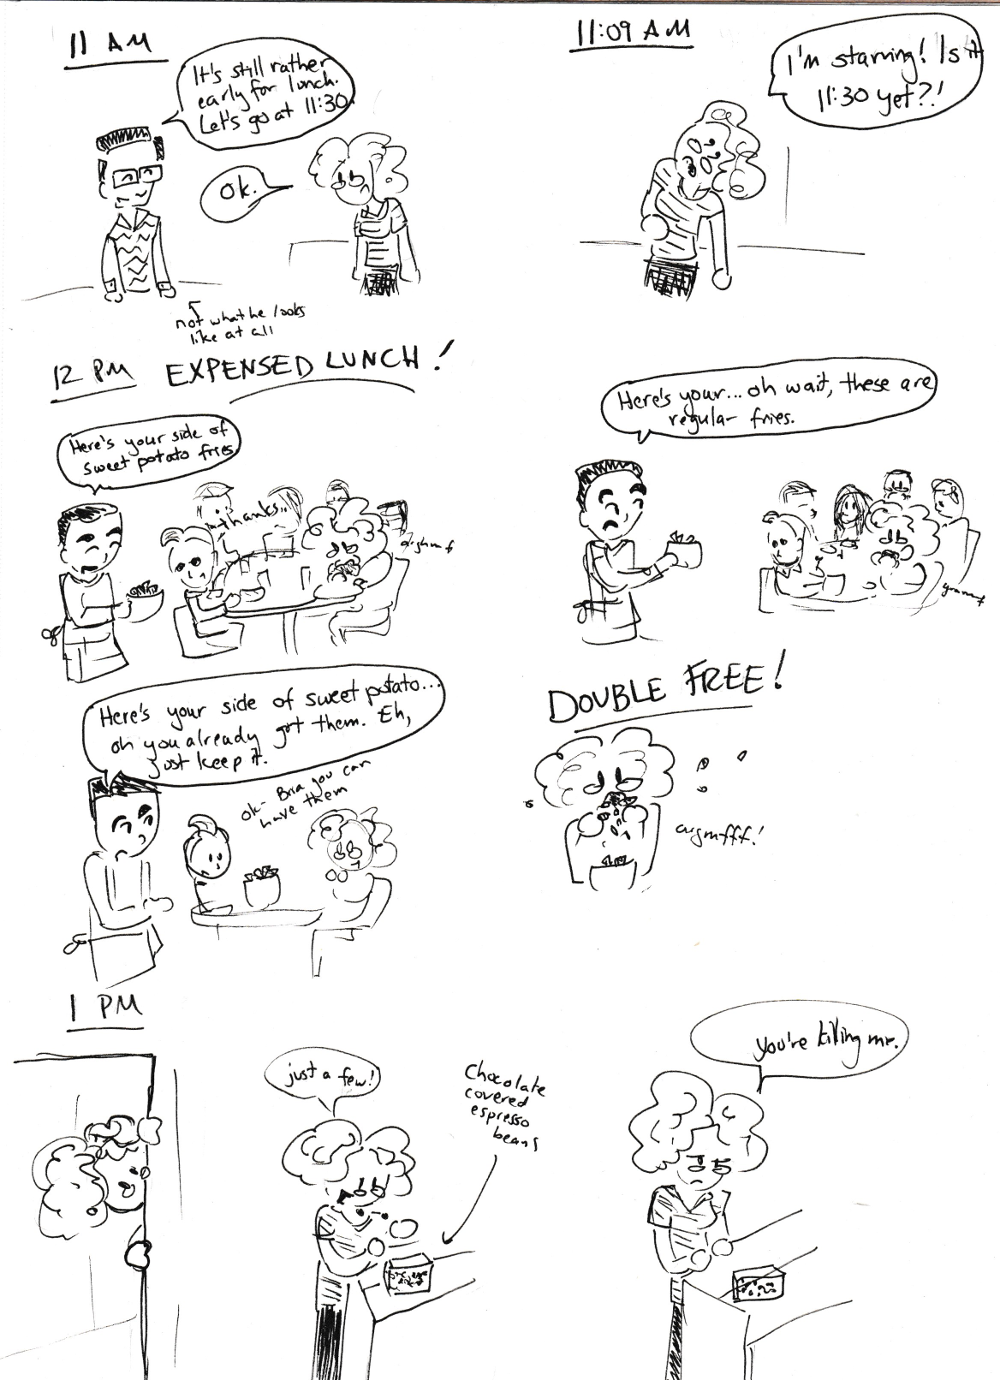 11 AM
It's still rather
early for lunch.
Let's go at 11:30.
Ok.
not what he looks
like at all
11:09 AM
I'm starving! Is it
11:30 yet?!
12 PM EXPENSED LUNCH!
Here's your side of
sweet potato fries
thanks..
Here's your... oh wait, these are
regular fries.
Here's your side of sweet potato...
oh you already got them. Eh,
just keep it.
ok- Bria you can
have them
DOUBLE FREE!
1 PM
just a few!
Chocolate
covered
espresso
beans
you're killing me.